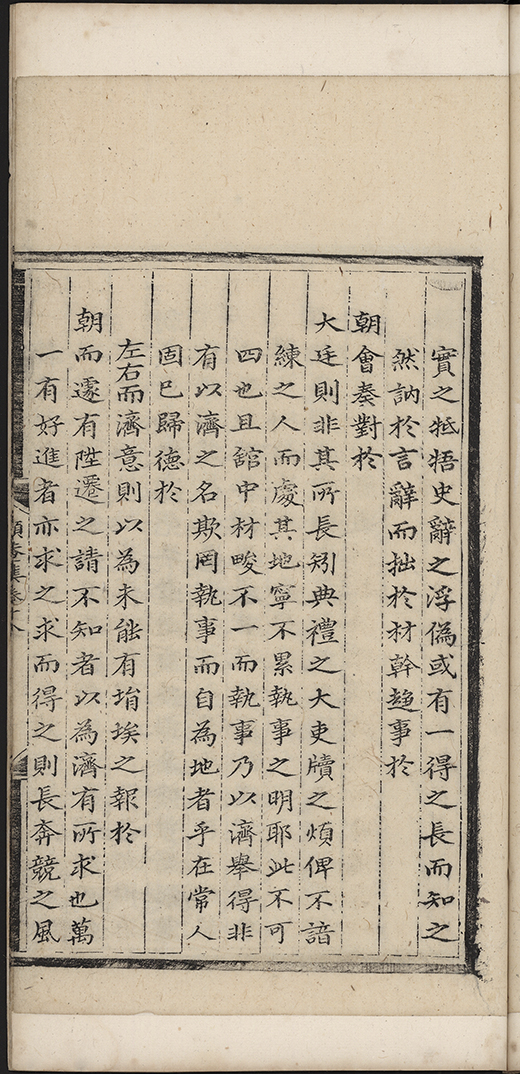 實之牴牾史辭之浮偽或有一得之長而知之
然訥於言辭而拙於材幹趍事於
朝會奏對於
大廷則非其所長矧典禮之大吏牘之煩俾不諳
練之人而處其地寧不累執事之明耶此不可
四也且舘中材畯不一而執事乃以濟舉得非
有以濟之名欺罔執事而自為地者乎在常人
固已歸德於
左右而濟意則以為未能有㳙埃之報於
朝而遽有陞遷之請不知者以為濟有所求也萬
一有好進者亦求之求而得之則長奔競之風
頤菴集卷八